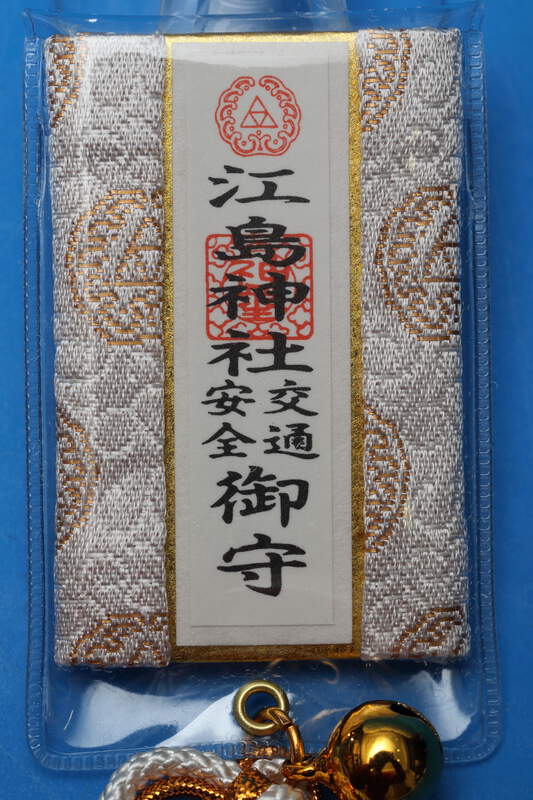 江島神社
交通
安全
御守